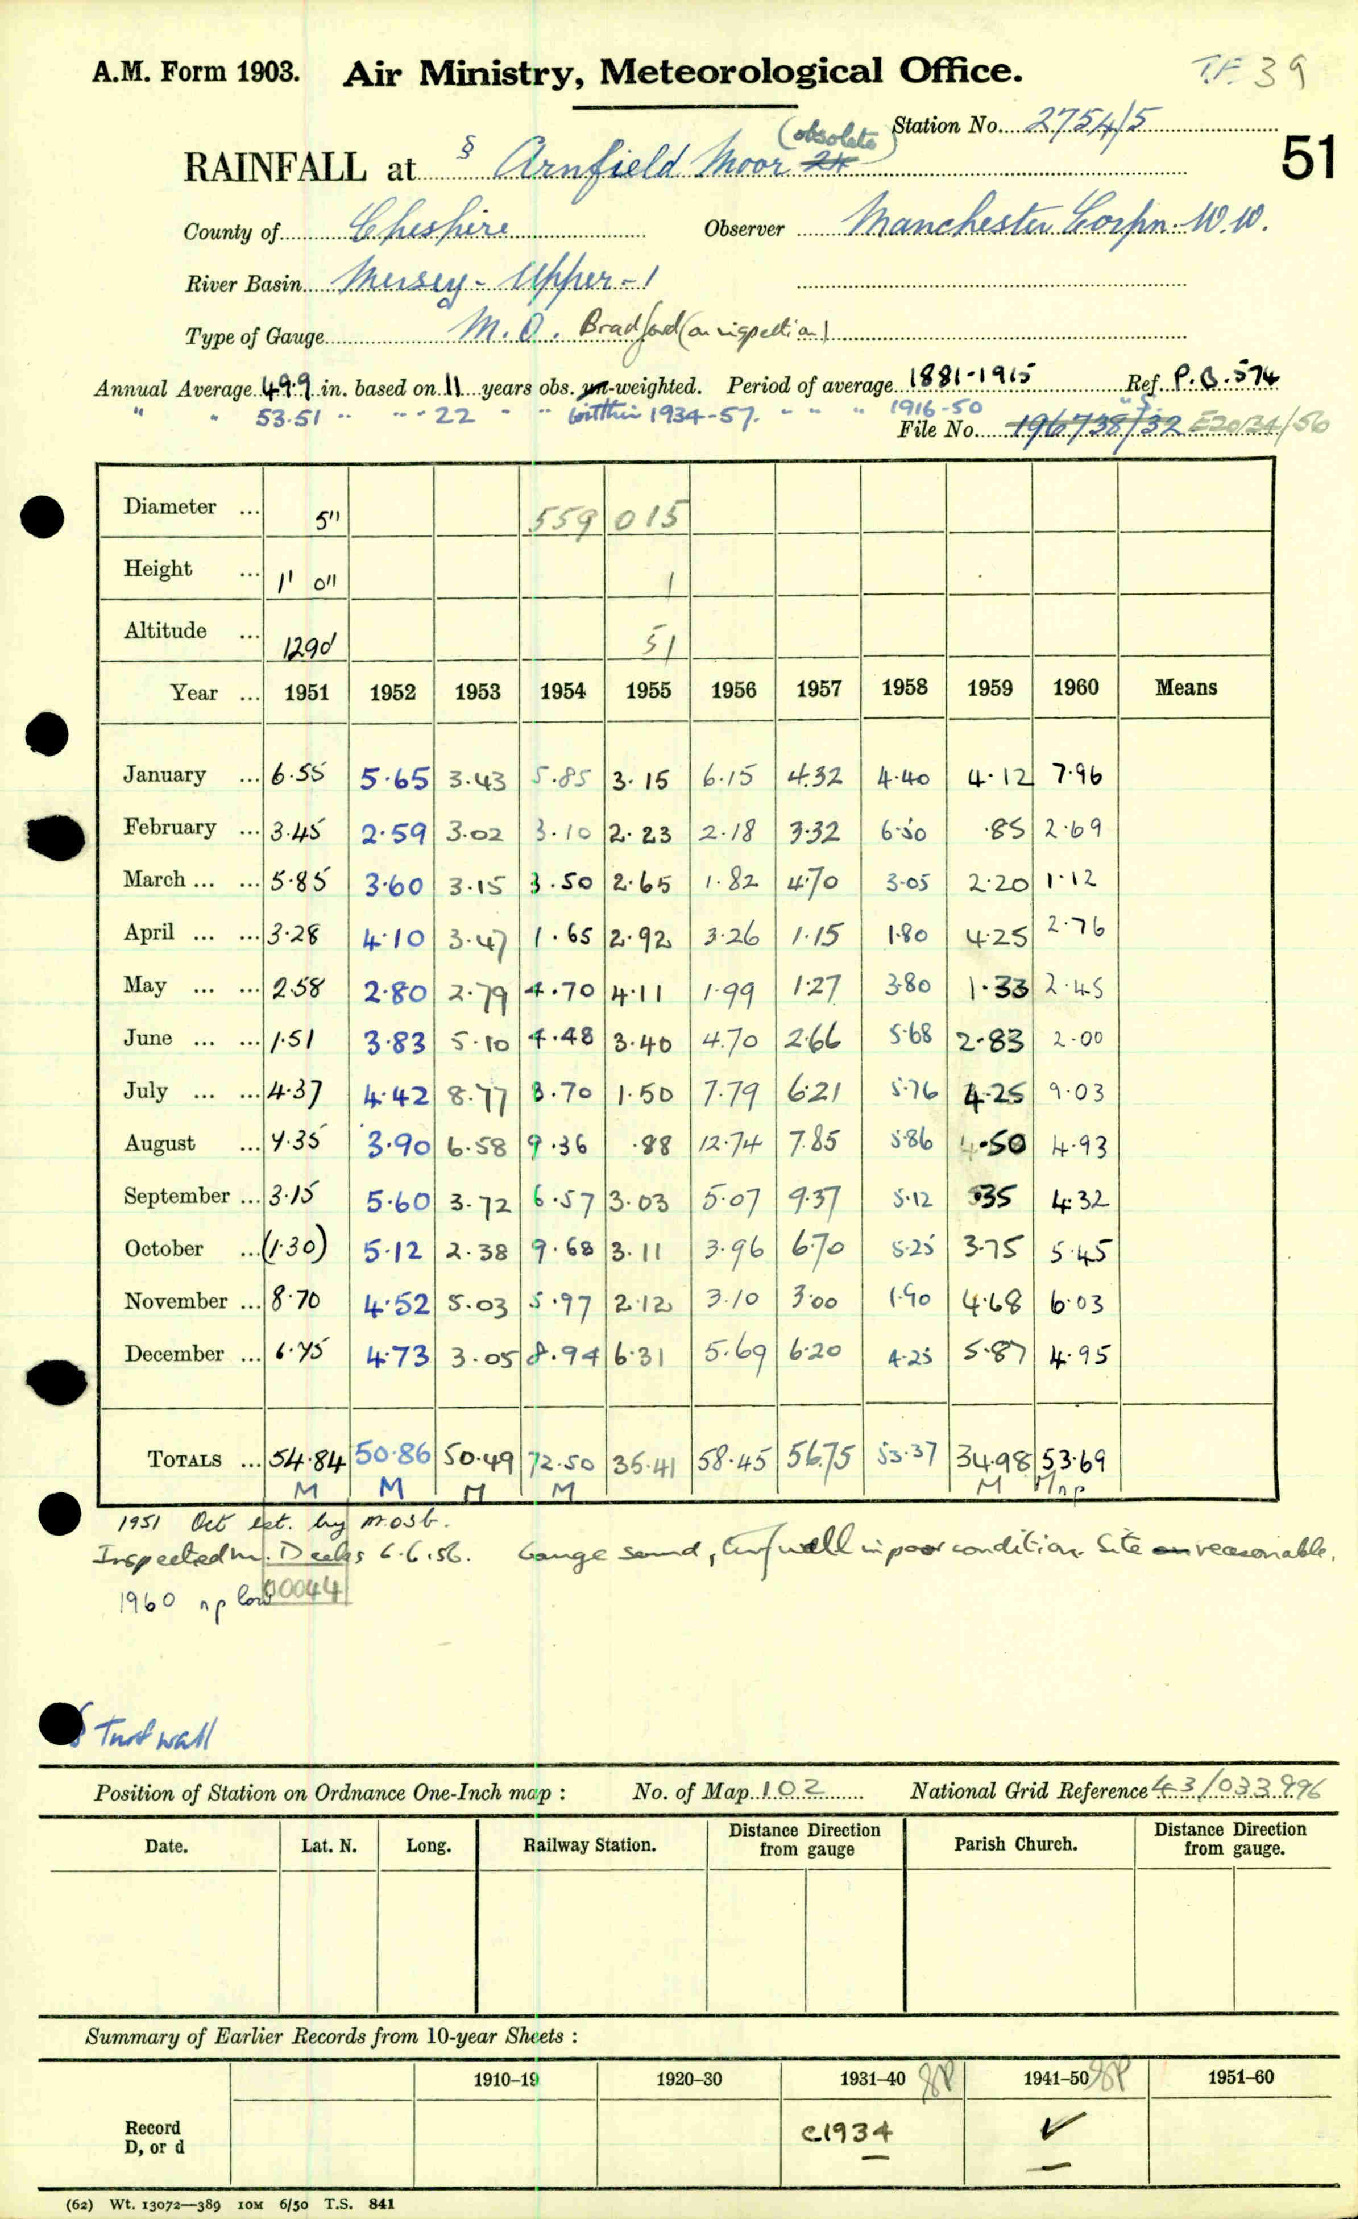 A.M. Form 1903. Air Ministry, Meteorological Office. T.F. 39
Station No. 2754/5
51
RAINFALL at § Arnfield Moor 2H (obsolete)
County of Cheshire Observer Manchester Corpn. W.W.
River Basin Mersey - Upper - 1
Type of Gauge M.O. Bradford (on inspection)
Annual Average 49.9 in. based on 11 years obs. un-weighted. Period of average 1881-1915 Ref. P.B. 574
" " 53.51 " " " 22 " " within 1934-57. " " " 1916-50 " S.
File No. 196738/32 E20134/56
Diameter ... 5" 559 015
Height ... 1' 0" 1
Altitude ... 1290' 51
Year ... 1951 1952 1953 1954 1955 1956 1957 1958 1959 1960 Means
January ... 6.55 5.65 3.43 5.85 3.15 6.15 4.32 4.40 4.12 7.96
February ... 3.45 2.59 3.02 3.10 2.23 2.18 3.32 6.50 .85 2.69
March ... ... 5.85 3.60 3.15 3.50 2.65 1.82 4.70 3.05 2.20 1.12
April ... ... 3.28 4.10 3.47 1.65 2.92 3.26 1.15 1.80 4.25 2.76
May ... ... 2.58 2.80 2.79 4.70 4.11 1.99 1.27 3.80 1.33 2.45
June ... ... 1.51 3.83 5.10 4.48 3.40 4.70 2.66 5.68 2.83 2.00
July ... ... 4.37 4.42 8.77 8.70 1.50 7.79 6.21 5.76 4.25 9.03
August ... 7.35 3.90 6.58 9.36 .88 12.74 7.85 5.86 .50 4.93
September ... 3.15 5.60 3.72 6.57 3.03 5.07 9.37 5.12 .35 4.32
October ... (1.30) 5.12 2.38 9.68 3.11 3.96 6.70 5.25 3.75 5.45
November ... 8.70 4.52 5.03 5.97 2.12 3.10 3.00 1.90 4.68 6.03
December ... 6.75 4.73 3.05 8.94 6.31 5.69 6.20 4.25 5.87 4.95
TOTALS ... 54.84 50.86 50.49 72.50 35.41 58.45 56.75 53.37 34.98 53.69
M M M M M M np
1951 Oct est. by M.O.3b.
Inspected Mr. Deeks 6.6.56. Gauge sound, turf wall in poor condition. Site reasonable.
1960 np low 00044
§ Turf wall
Position of Station on Ordnance One-Inch map : No. of Map 102 National Grid Reference 43/033996
Date. Lat. N. Long. Railway Station. Distance from gauge Direction Parish Church. Distance from gauge. Direction
Summary of Earlier Records from 10-year Sheets :
1910-19 1920-30 1931-40 SP 1941-50 SP 1951-60
Record D, or d c1934 ✓
(62) Wt. 13072—389 10M 6/50 T.S. 841